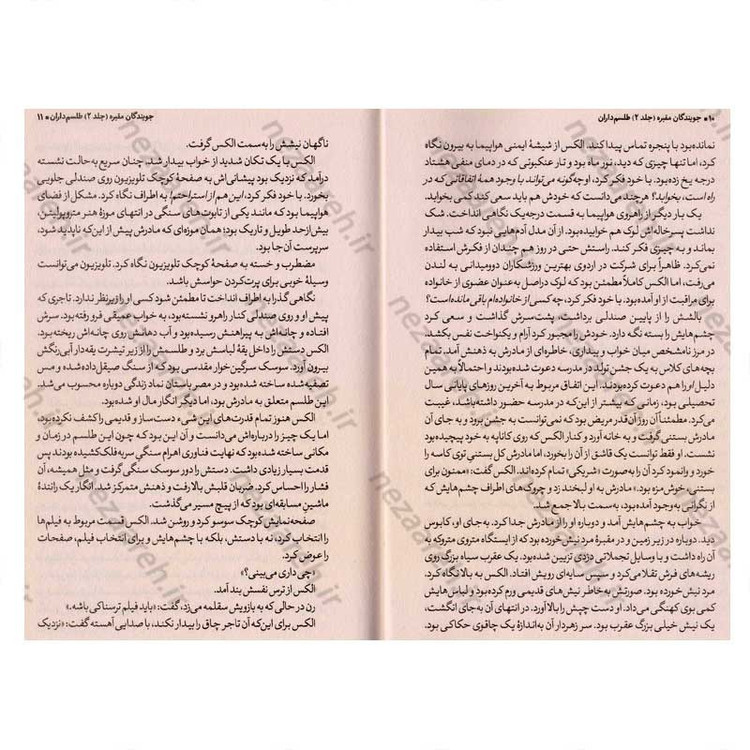 ۱۰ جویندگان مقبره (جلد ۲) طلسم‌داران
نمانده بود با پنجره تماس پیدا کند. الکس از شیشهٔ ایمنی هواپیما به بیرون نگاه
کرد، اما تنها چیزی که دید، نور ماه بود و تار عنکبوتی که در دمای منفی هشتاد
درجه یخ زده بود. با خود فکر کرد، او چه‌گونه می‌تواند با وجود همهٔ اتفاقاتی که در
راه است، بخوابد؟ هرچند می‌دانست که خودش هم باید سعی کند کمی بخوابد.
یک بار دیگر از راهروی هواپیما به قسمت درجه‌یک نگاهی انداخت. شک
نداشت پسرخاله‌اش لوک هم خوابیده بود. از آن مدل آدم‌هایی نبود که شب بیدار
بماند و به چیزی فکر کند. راستش حتی در روز هم چندان از فکرش استفاده
نمی‌کرد. ظاهراً برای شرکت در اردوی بهترین ورزشکاران دوومیدانی به لندن
می‌رفت، اما الکس کاملاً مطمئن بود که لوک دراصل به‌عنوان عضوی از خانواده
برای مراقبت از او آمده بود. با خود فکر کرد، چه کسی از خانواده‌ام باقی مانده است؟
بالشش را از پایین صندلی برداشت، پشت‌سرش گذاشت و سعی کرد
چشم‌هایش را بسته نگه دارد. خودش را مجبور کرد آرام و یکنواخت نفس بکشد.
در مرز نامشخص میان خواب و بیداری، خاطره‌ای از مادرش به ذهنش آمد. تمام
بچه‌های کلاس به یک جشن تولد در مدرسه دعوت شده بودند و احتمالاً به همین
دلیل او را هم دعوت کرده بودند. این اتفاق مربوط به آخرین روزهای پایانی سال
تحصیلی بود، زمانی که بیشتر از این‌که در مدرسه حضور داشته باشد، غیبت
می‌کرد. مطمئناً آن روز آن‌قدر مریض بود که نمی‌توانست به جشن برود و به جای آن
مادرش بستنی گرفت و به خانه آورد و کنار الکس که روی کاناپه به خود پیچیده بود
نشست. او فقط توانست یک قاشق از آن را بخورد، اما مادرش کل بستنی توی کاسه را
خورد و وانمود کرد آن را به‌صورت «شریکی» تمام کرده‌اند. الکس گفت: «ممنون برای
بستنی، خوش‌مزه بود.» مادرش به او لبخند زد و چروک‌های اطراف چشم‌هایش که
از نگرانی به‌وجود آمده بود، به‌سمت بالا جمع شد.
خواب به چشم‌هایش آمد و دوباره او را از مادرش جدا کرد. به جای او، کابوس
دوباره در زیر زمین و در مقبرهٔ مرد نیش خورده بود که از ایستگاه متروی متروکه به
آن راه داشت و با وسایل تجملاتی دزدی تزیین شده بود. یک عقرب سیاه بزرگ روی
ریشه‌های فرش تقلا می‌کرد و سپس سایه‌ای رویش افتاد. الکس به بالا نگاه کرد.
مرد نیش خورده بود. صورتش به‌خاطر نیش‌های قدیمی ورم کرده بود و لباس‌هایش
کمی بوی کهنگی می‌داد. او دست چپش را بالا آورد. در انتهای آن به‌جای انگشت،
یک نیش خیلی بزرگ عقرب بود. سر زهردار آن به‌اندازهٔ یک چاقوی حکاکی بود.
جویندگان مقبره (جلد ۲) طلسم‌داران ۱۱
ناگهان نیشش را به سمت الکس گرفت.
الکس با یک تکان شدید از خواب بیدار شد. چنان سریع به حالت نشسته
درآمد که نزدیک بود پیشانی‌اش به صفحهٔ کوچک تلویزیون روی صندلی جلویی
بخورد. با خود فکر کرد، این هم از استراحتم! به اطراف نگاه کرد. مشکل از فضای
هواپیما بود که مانند یکی از تابوت‌های سنگی در انتهای موزهٔ هنر متروپولیتن،
بیش از حد طویل و تاریک بود؛ همان موزه‌ای که مادرش پیش از این‌که ناپدید شود،
سرپرست آن‌جا بود.
مضطرب و خسته به صفحهٔ کوچک تلویزیون نگاه کرد. تلویزیون می‌توانست
وسیلهٔ خوبی برای پرت‌کردن حواسش باشد.
نگاهی گذرا به اطراف انداخت تا مطمئن شود کسی او را زیرنظر ندارد. تاجری که
پیش او و روی صندلی کنار راهرو نشسته بود، به خواب عمیقی فرو رفته بود. سرش
افتاده و چانه‌اش به پیراهنش رسیده بود و آب دهانش روی چانه‌اش ریخته بود.
الکس دستش را داخل یقهٔ لباسش برد و طلسمش را از زیر تیشرت یقه‌دار آبی‌رنگش
بیرون آورد. سوسک سرگین‌خوار مقدسی بود که از سنگ صیقل‌داده‌شده و مس
تصفیه‌شده ساخته شده بود و در مصر باستان نماد زندگی دوباره محسوب می‌شد.
این طلسم متعلق به مادرش بود، اما دیگر انگار مال او شده بود.
الکس هنوز تمام قدرت‌های این شیء دست‌ساز و قدیمی را کشف نکرده بود،
اما یک چیز را درباره‌اش می‌دانست و آن این بود که چون این طلسم در زمان و
مکانی ساخته شده بود که نهایت فناوری اهرام سنگی سربه‌فلک‌کشیده بودند پس
قدمت بسیار زیادی داشت. دستش را دور سوسک سنگی گرفت و مثل همیشه، آن
فشار را احساس کرد. ضربان قلبش بالا رفت و ذهنش متمرکز شد. انگار یک رانندهٔ
ماشین مسابقه‌ای بود که از پیچ مسیر می‌گذشت.
صفحه‌نمایش کوچک سوسو کرد و روشن شد. الکس قسمت مربوط به فیلم‌ها
را انتخاب کرد، نه با دستش، بلکه با چشم‌هایش و برای انتخاب فیلم، صفحات
را عوض کرد.
«چی داری می‌بینی؟»
الکس از ترس نفسش بند آمد.
رن در حالی که به بازویش سقلمه می‌زد، گفت: «باید فیلم ترسناکی باشه.»
الکس برای این‌که آن تاجر چاق را بیدار نکند، با صدایی آهسته گفت: «نزدیک
nezaareh.ir